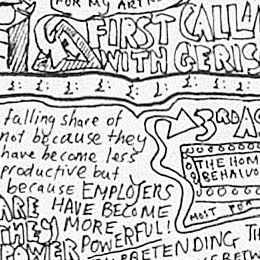 FOR MY ART
A FIRST CALL
WITH GERIS
£ £ £ £ £ £ £
falling share of
not because they
have become less
productive but
because EMPLOYERS
HAVE BECOME
MORE
POWERFUL!
ARE
THEY
POWER
3RD AG
THE HOM
BEHAVIO
MOST FOR
PRETENDING TH